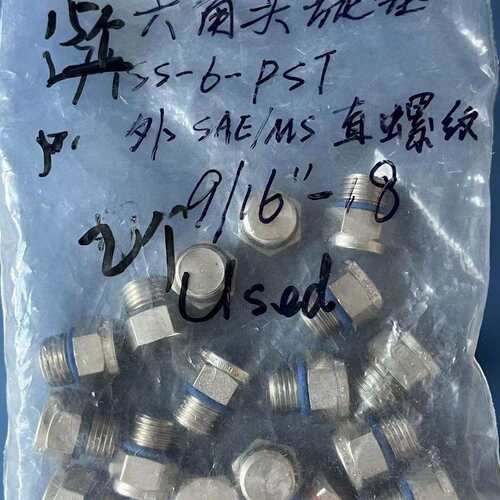 六角头旋塞
SS-6-PST
外 SAE/MS 直螺纹
9/16"-18
Used